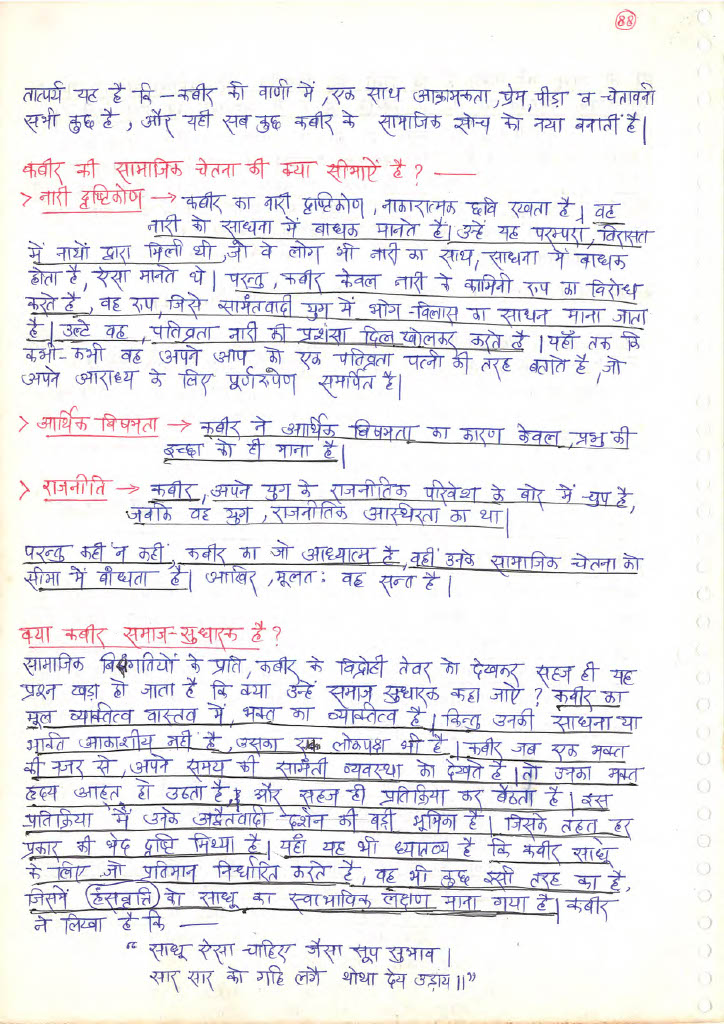 88
तात्पर्य यह है कि – कबीर की वाणी में, एक साथ आक्रामकता, प्रेम, पीड़ा व चेतावनी
सभी कुछ है, और यही सब कुछ कबीर के सामाजिक सोच को नया बनाती है|
कबीर की सामाजिक चेतना की क्या सीमाऐं है? —
> नारी दृष्टिकोण → कबीर का नारी दृष्टिकोण, नाकारात्मक छवि रखता है| वह
नारी को साधना में बाधक मानते है| उन्हें यह परम्परा, विरासत
में नाथों द्वारा मिली थी, जो वे लोग भी नारी का साथ, साधना में बाधक
होता है, ऐसा मानते थे| परन्तु, कबीर केवल नारी के कामिनी रूप का विरोध
करते है, वह रूप, जिसे सामंतवादी युग में भोग-विलास का साधन माना जाता
है| उल्टे वह, पतिव्रता नारी की प्रशंसा दिल खोलकर करते है| यहाँ तक कि
कभी-कभी वह अपने आप को एक पतिव्रता पत्नी की तरह बताते है, जो
अपने आराध्य के लिए पूर्णरूपेण समर्पित है|
> आर्थिक विषमता → कबीर ने आर्थिक विषमता का कारण केवल, प्रभु की
इच्छा को ही माना है|
> राजनीति → कबीर, अपने युग के राजनीतिक परिवेश के बारे में चुप है,
जबकि वह युग, राजनीतिक अस्थिरता का था|
परन्तु कहीं न कहीं, कबीर का जो आध्यात्म है, वहीं उनके सामाजिक चेतना को
सीमा में बाँधता है| आखिर, मूलत: वह सन्त है|
क्या कबीर समाज-सुधारक है?
सामाजिक विसंगतियों के प्रति, कबीर के विद्रोही तेवर को देखकर सहज ही यह
प्रश्न खड़ा हो जाता है कि क्या उन्हें समाज सुधारक कहा जाए? कबीर का
मूल व्यक्तित्व वास्तव में, भक्त का व्यक्तित्व है| किन्तु उनकी साधना या
भक्ति आकाशीय नहीं है, उसका एक लोकपक्ष भी है| कबीर जब एक भक्त
की नजर से, अपने समय की सामंती व्यवस्था को देखते है| तो उनका भक्त
हृदय आहत हो उठता है, और सहज ही प्रतिक्रिया कर बैठता है| इस
प्रतिक्रिया में उनके अद्वैतवादी दर्शन की बड़ी भूमिका है| जिसके तहत हर
प्रकार की भेद दृष्टि मिथ्या है| यहाँ यह भी ध्यातव्य है कि कबीर साधु
के लिए जो प्रतिमान निर्धारित करते है, वह भी कुछ इसी तरह का है,
जिसमें (हंसवृत्ति) को साधू का स्वाभाविक लक्षण माना गया है| कबीर
ने लिखा है कि —
“ साधू ऐसा चाहिए जैसा सूप सुभाव |
सार सार को गहि लगै थोथा देय उड़ाय ||”